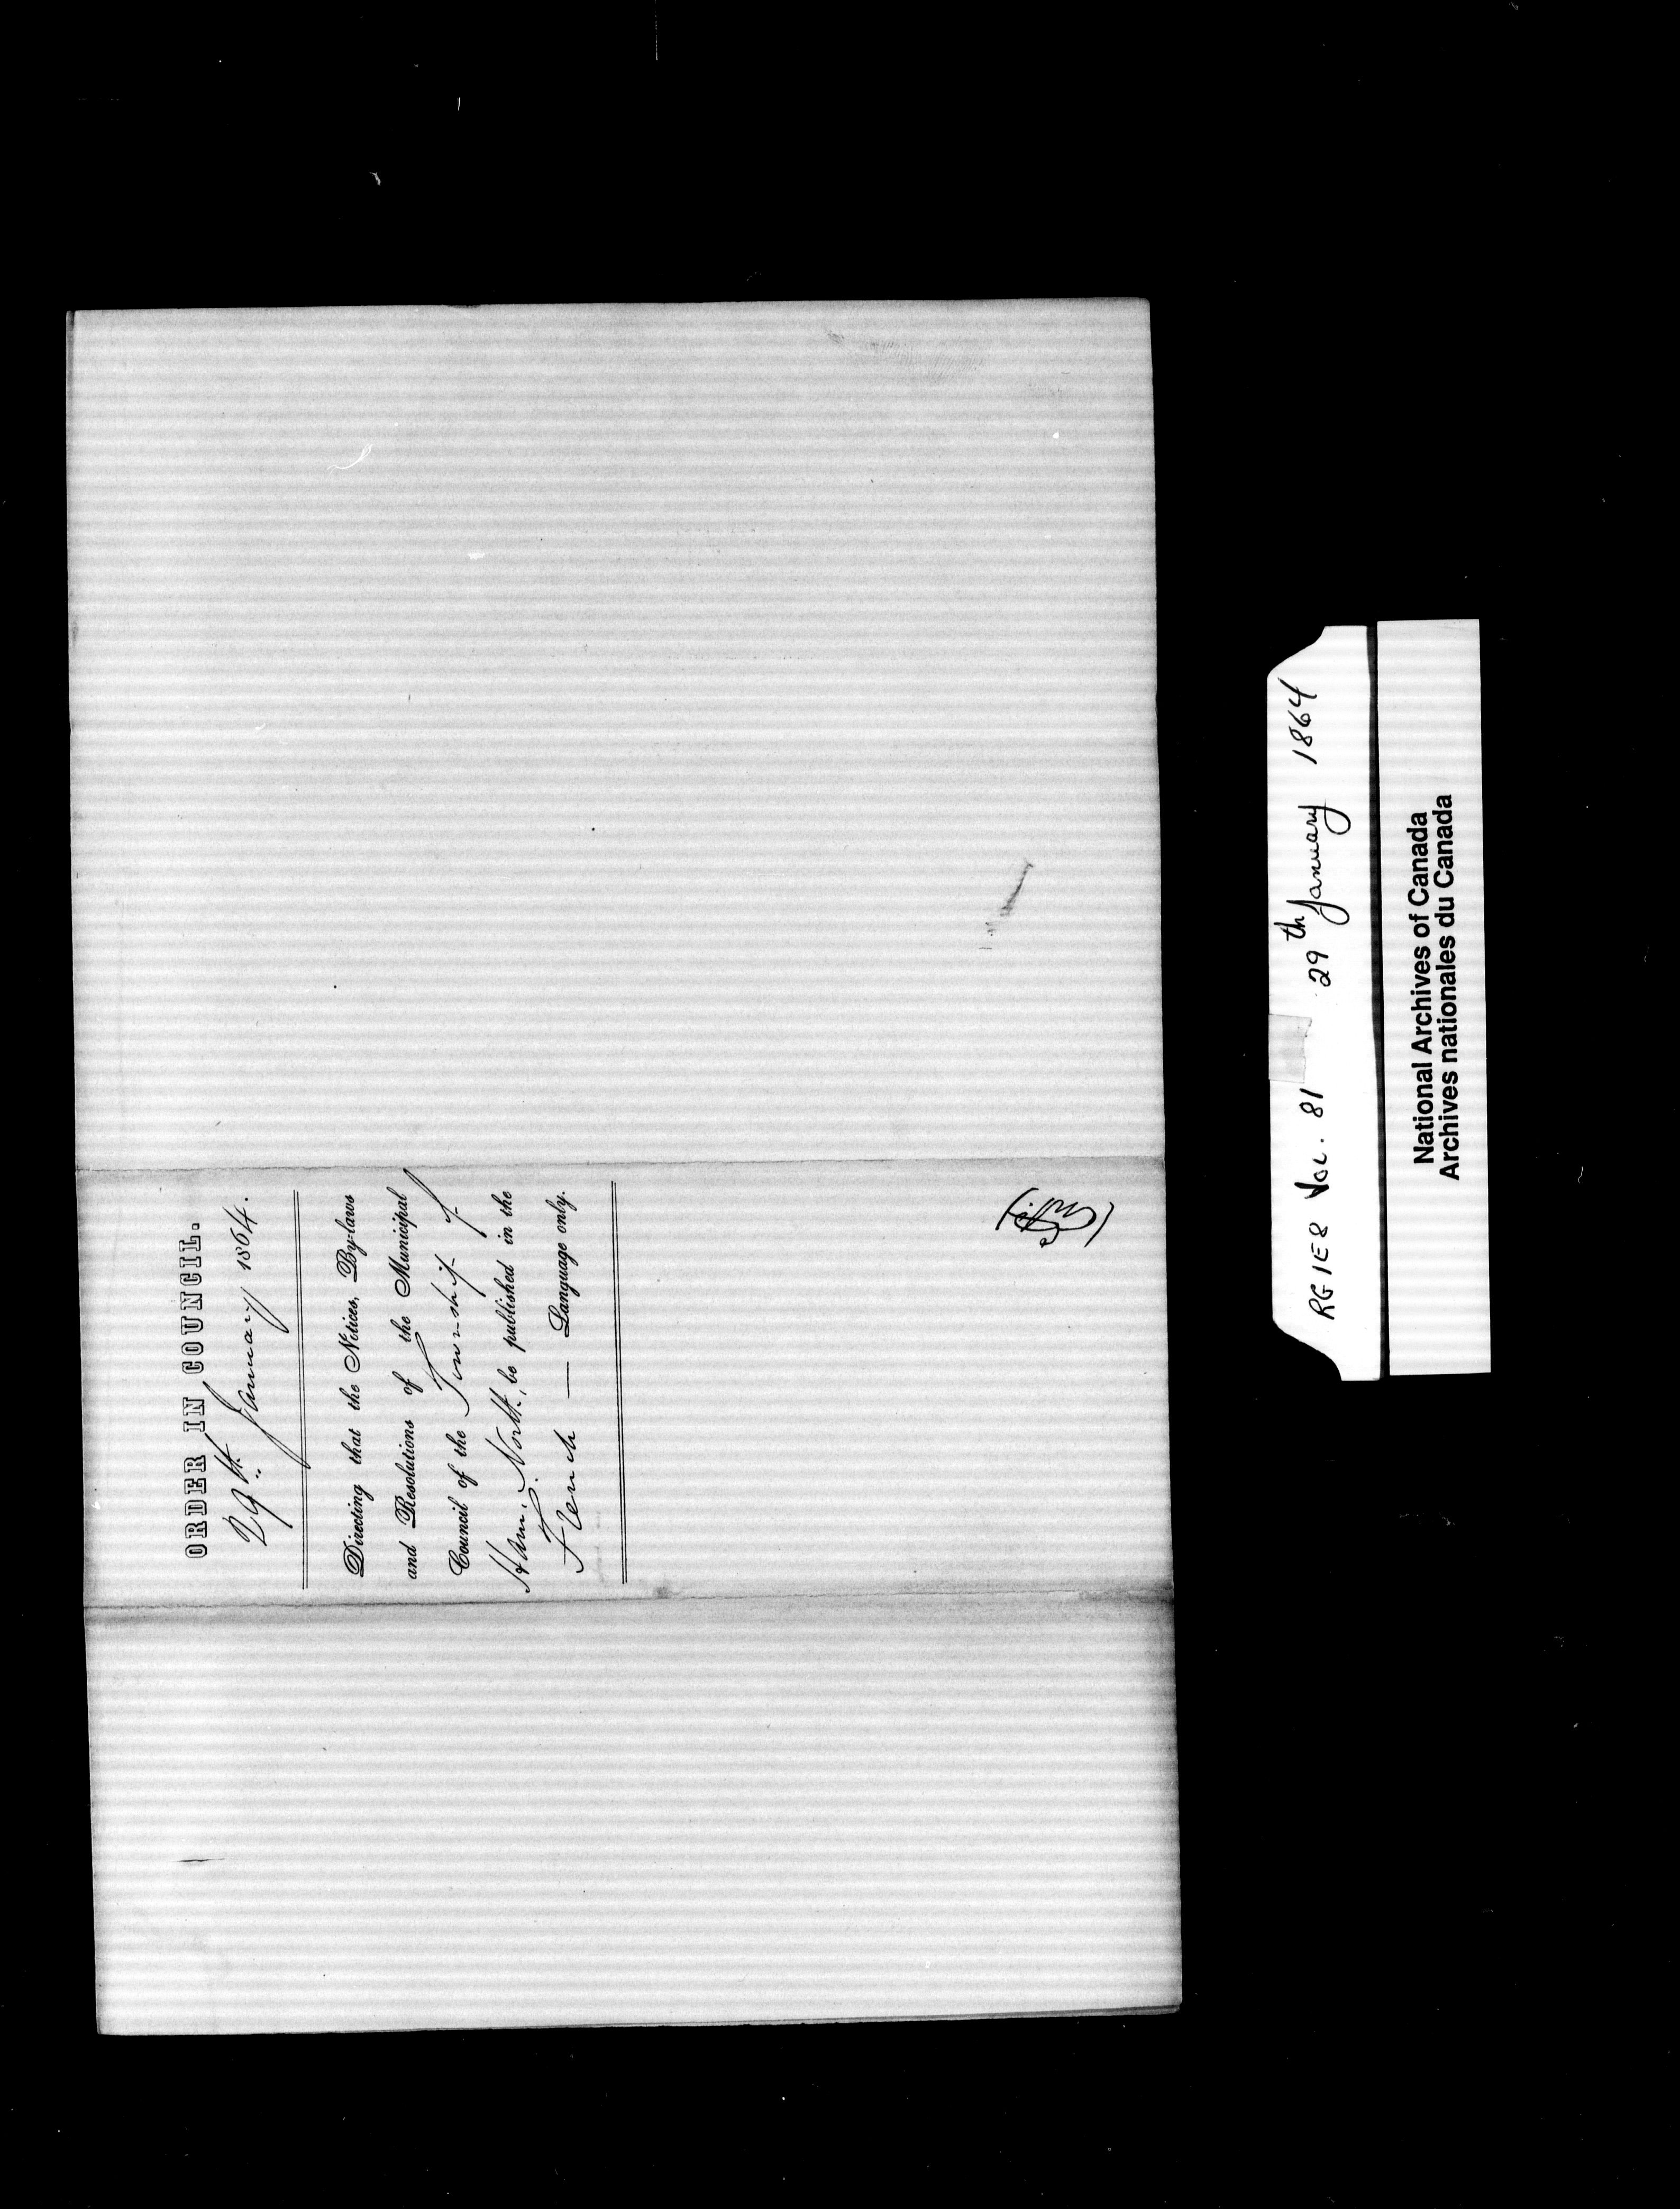 ORDER IN COUNCIL.
29th January 1864.
Directing that the Notices, By-laws
and Resolutions of the Municipal
Council of the Township of
Ham. North, be published in the
French — Language only.
RG 1E8 VOL. 81 29th January 1864
National Archives of Canada
Archives nationales du Canada